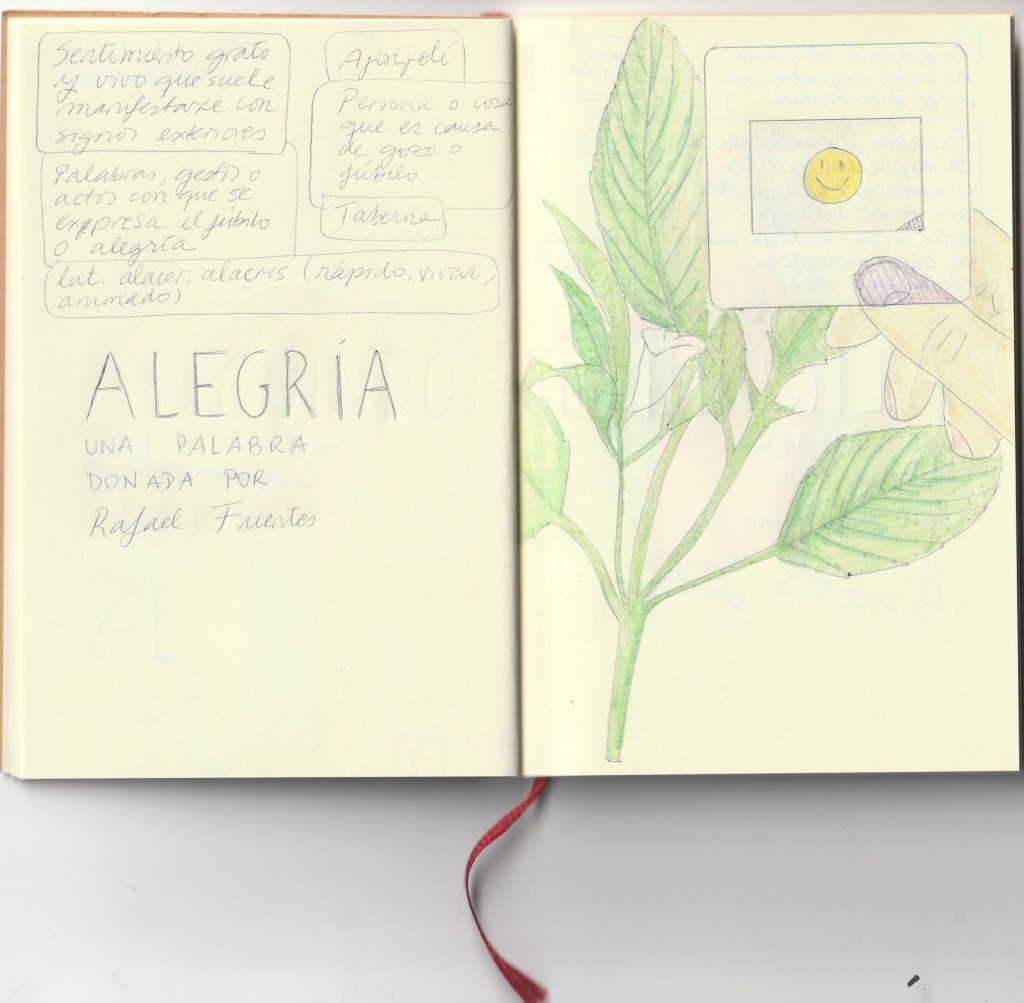 Sentimiento grato
y vivo que suele
manifestarse con
signos exteriores
Palabras, gestos o
actos con que se
expresa el júbilo
o alegría
Ajonjolí
Persona o cosa
que es causa
de gozo o
júbilo
Taberna
lat. alacer, alacris (rápido, vivaz,
animado)
ALEGRÍA
UNA PALABRA
DONADA POR
Rafael Fuertes